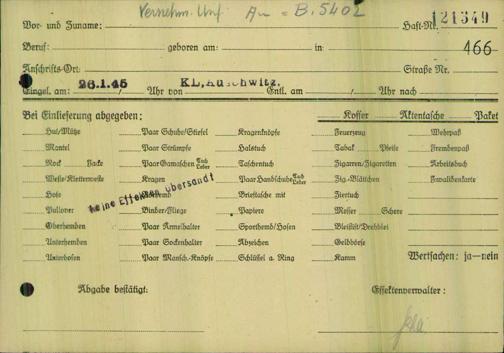 Vernehm. Unf. Au = B. 5402
Vor- und Zuname: Haft-Nr. 121349
Beruf: geboren am: in: 466
Anschrifts-Ort: Straße Nr.
Eingel. am: 26.1.45 Uhr von KL. Auschwitz. Entl. am: Uhr nach
Bei Einlieferung abgegeben: Koffer Aktentasche Paket
Hut/Mütze Paar Schuhe/Stiefel Kragenknöpfe Feuerzeug Wehrpaß
Mantel Paar Strümpfe Halstuch Tabak Pfeife Fremdenpaß
Rock Jacke Paar Gamaschen Tuch Leder Taschentuch Zigarren/Zigaretten Arbeitsbuch
Weste/Kletterweste Kragen Paar Handschuhe Tuch Leder Zig.-Blättchen Invalidenkarte
Hose Brieftasche mit Ziertuch
keine Effekten übersandt
Pullover Binder/Fliege Papiere Messer Schere
Oberhemden Paar Ärmelhalter Sporthemd/Hosen Bleistift/Drehblei
Unterhemden Paar Sockenhalter Abzeichen Geldbörse Wertsachen: ja—nein
Unterhosen Paar Mansch.-Knöpfe Schlüssel a. Ring Kamm
Abgabe bestätigt: Effektenverwalter: